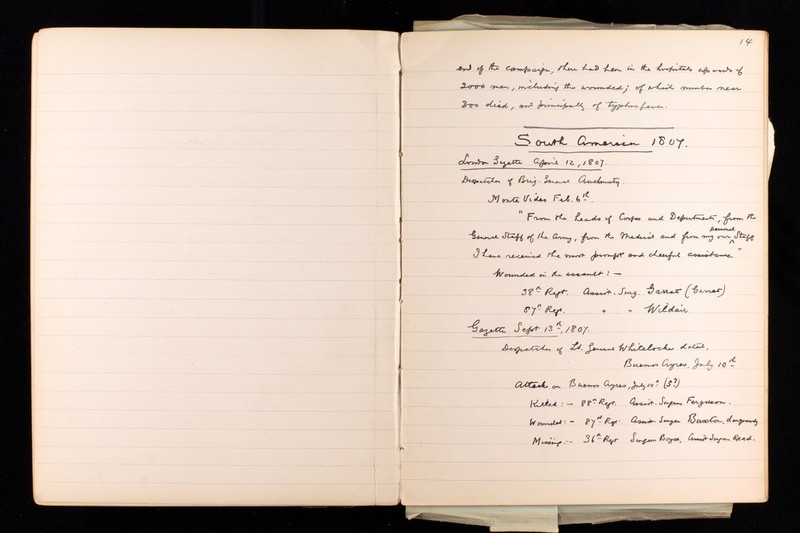 14
end of the campaign, there had been in the hospitals upwards of
2000 men, including the wounded; of which number near
300 died, and principally of typhus fever.
South America 1807.
London Gazette April 12, 1807.
Despatches of Brig. General Auchmuty.
Monte Video Feb. 6th
"From the heads of Corps and Departments, from the
General Staff of the Army, from the Medical and from my own personal Staff
I have received the most prompt and cheerful assistance"
Wounded in the assault: —
38th Regt. Assist. Surg. Garrat (Garrat)
87th Regt. " " Wildair
Gazette Sept 13th, 1807.
Despatches of Lt. General Whitelocke dated.
Buenos Ayres, July 10th
Attack on Buenos Ayres, July 10th (5?)
Killed: — 88th Regt. Assist. Surgeon Ferguson.
Wounded: — 87th Regt. Assist Surgeon Buxton, dangerously
Missing: — 36th Regt Surgeon Boyce, Assist Surgeon Read.